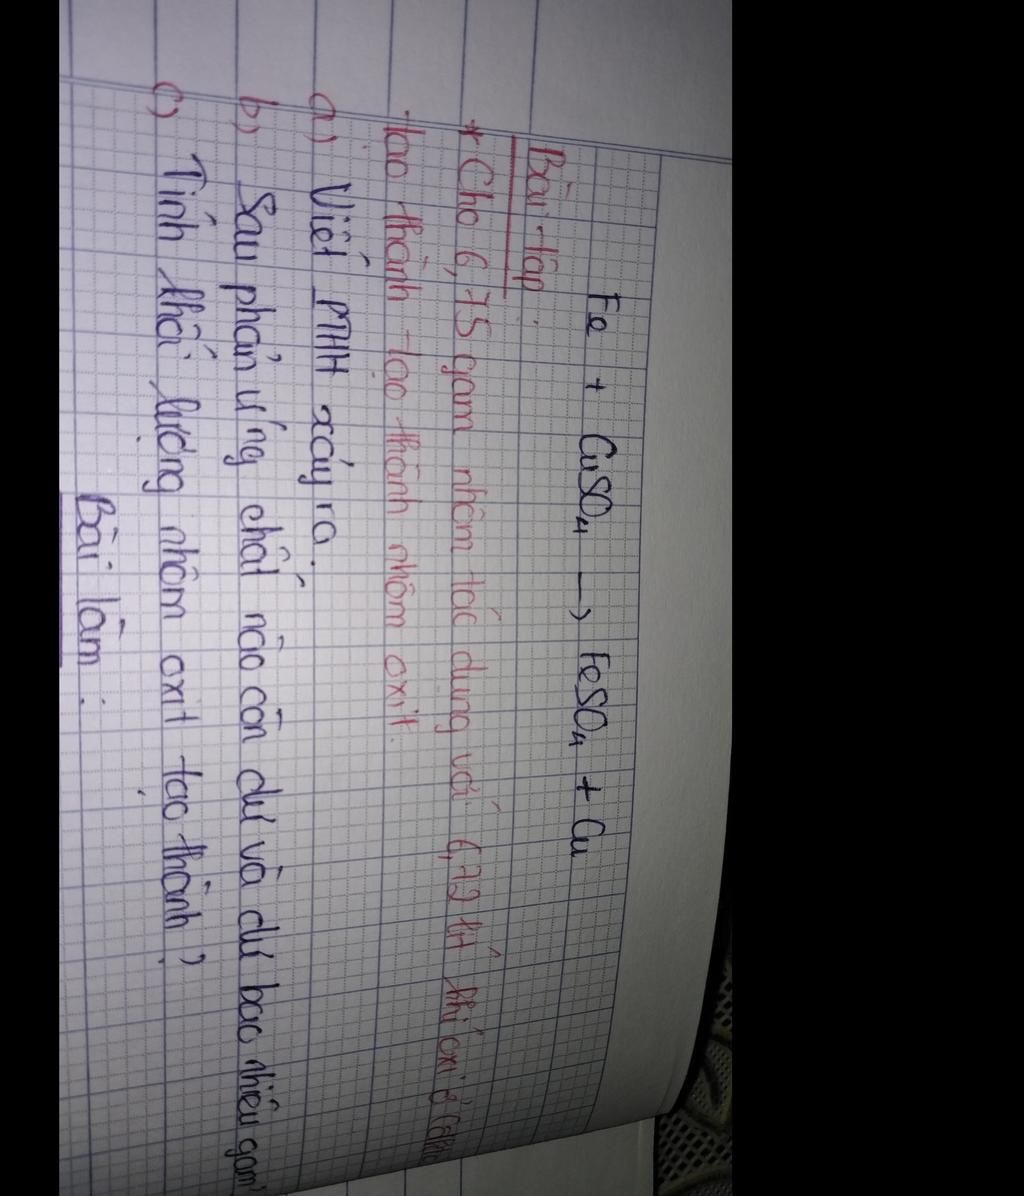 Fe + CuSO₄ → FeSO₄ + Cu
Bài tập:
* Cho 6,75 gam nhôm tác dụng với 6,72 lít khí oxi ở (đktc)
tạo thành tạo thành nhôm oxit.
a) Viết PTHH xảy ra.
b) Sau phản ứng chất nào còn dư và dư bao nhiêu gam?
c) Tính khối lượng nhôm oxit tạo thành?
Bài làm: